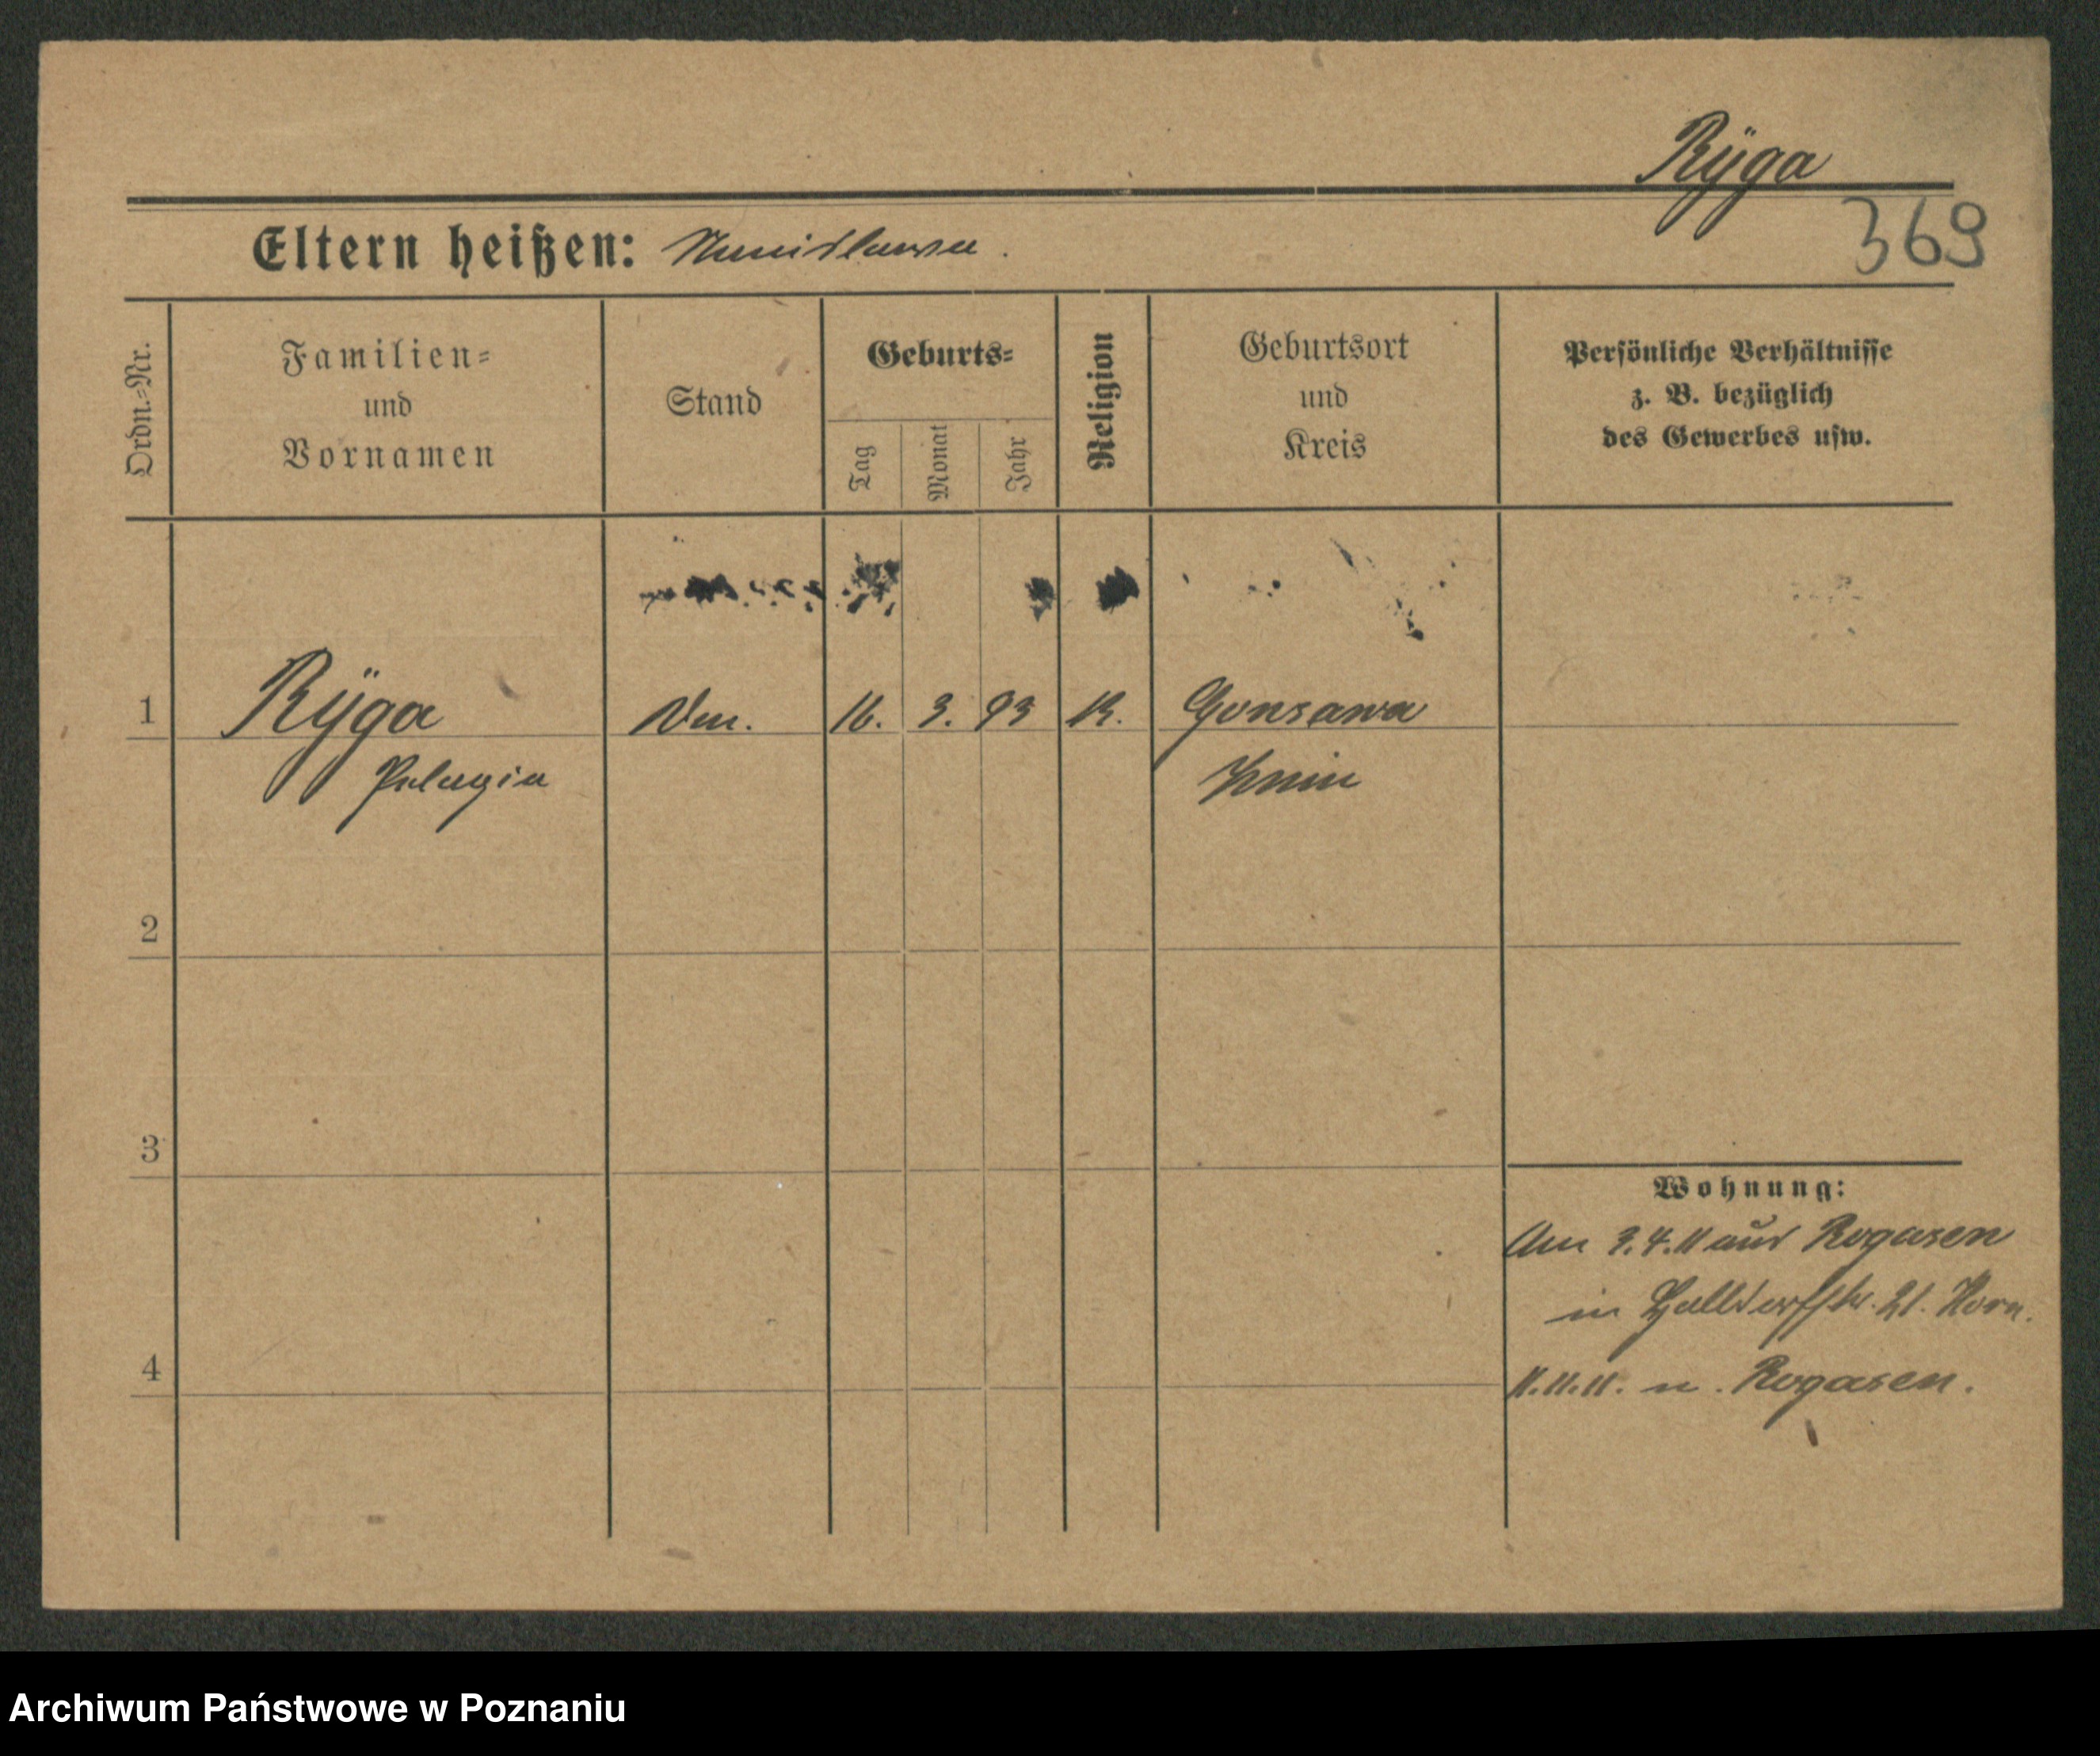 Rÿga
369
Eltern heißen: Stanislawa.
Ordn.=Nr.
Familien=
und
Vornamen
Stand
Geburts=
Tag
Monat
Jahr
Religion
Geburtsort
und
Kreis
Persönliche Verhältnisse
z. B. bezüglich
des Gewerbes usw.
1 Rÿga 16. 3. 93 K. Gonsawa
Pelagia Znin
2
3
Wohnung:
Am 3.4.11 aus Rogasen
in 21.
4
11.11.11. n. Rogasen.
Archiwum Państwowe w Poznaniu